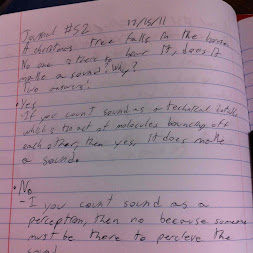 Journal #52 12/15/11
A christmas tree falls in the
No one is there to hear it, does it
make a sound? Why?
Two answers:
• Yes
- If you count sound as a technical
which is the act of molecules bouncing off
each other, then yes, it does make
a sound.
• No
- I you count sound as a
perception, then no because someone
must be there to percieve the